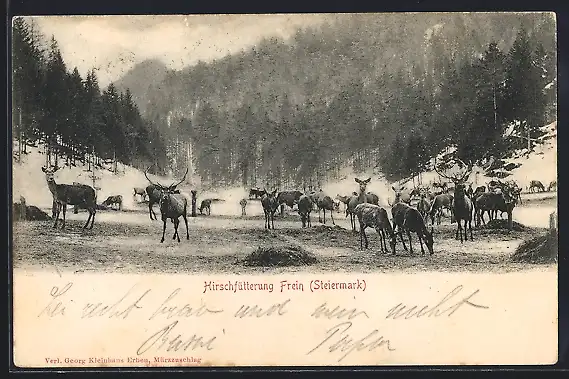 Hirschfütterung Frein (Steiermark)
Sei recht brav und mein nicht
Bussi
Verl. Georg Kleinhans Erben, Mürzzuschlag